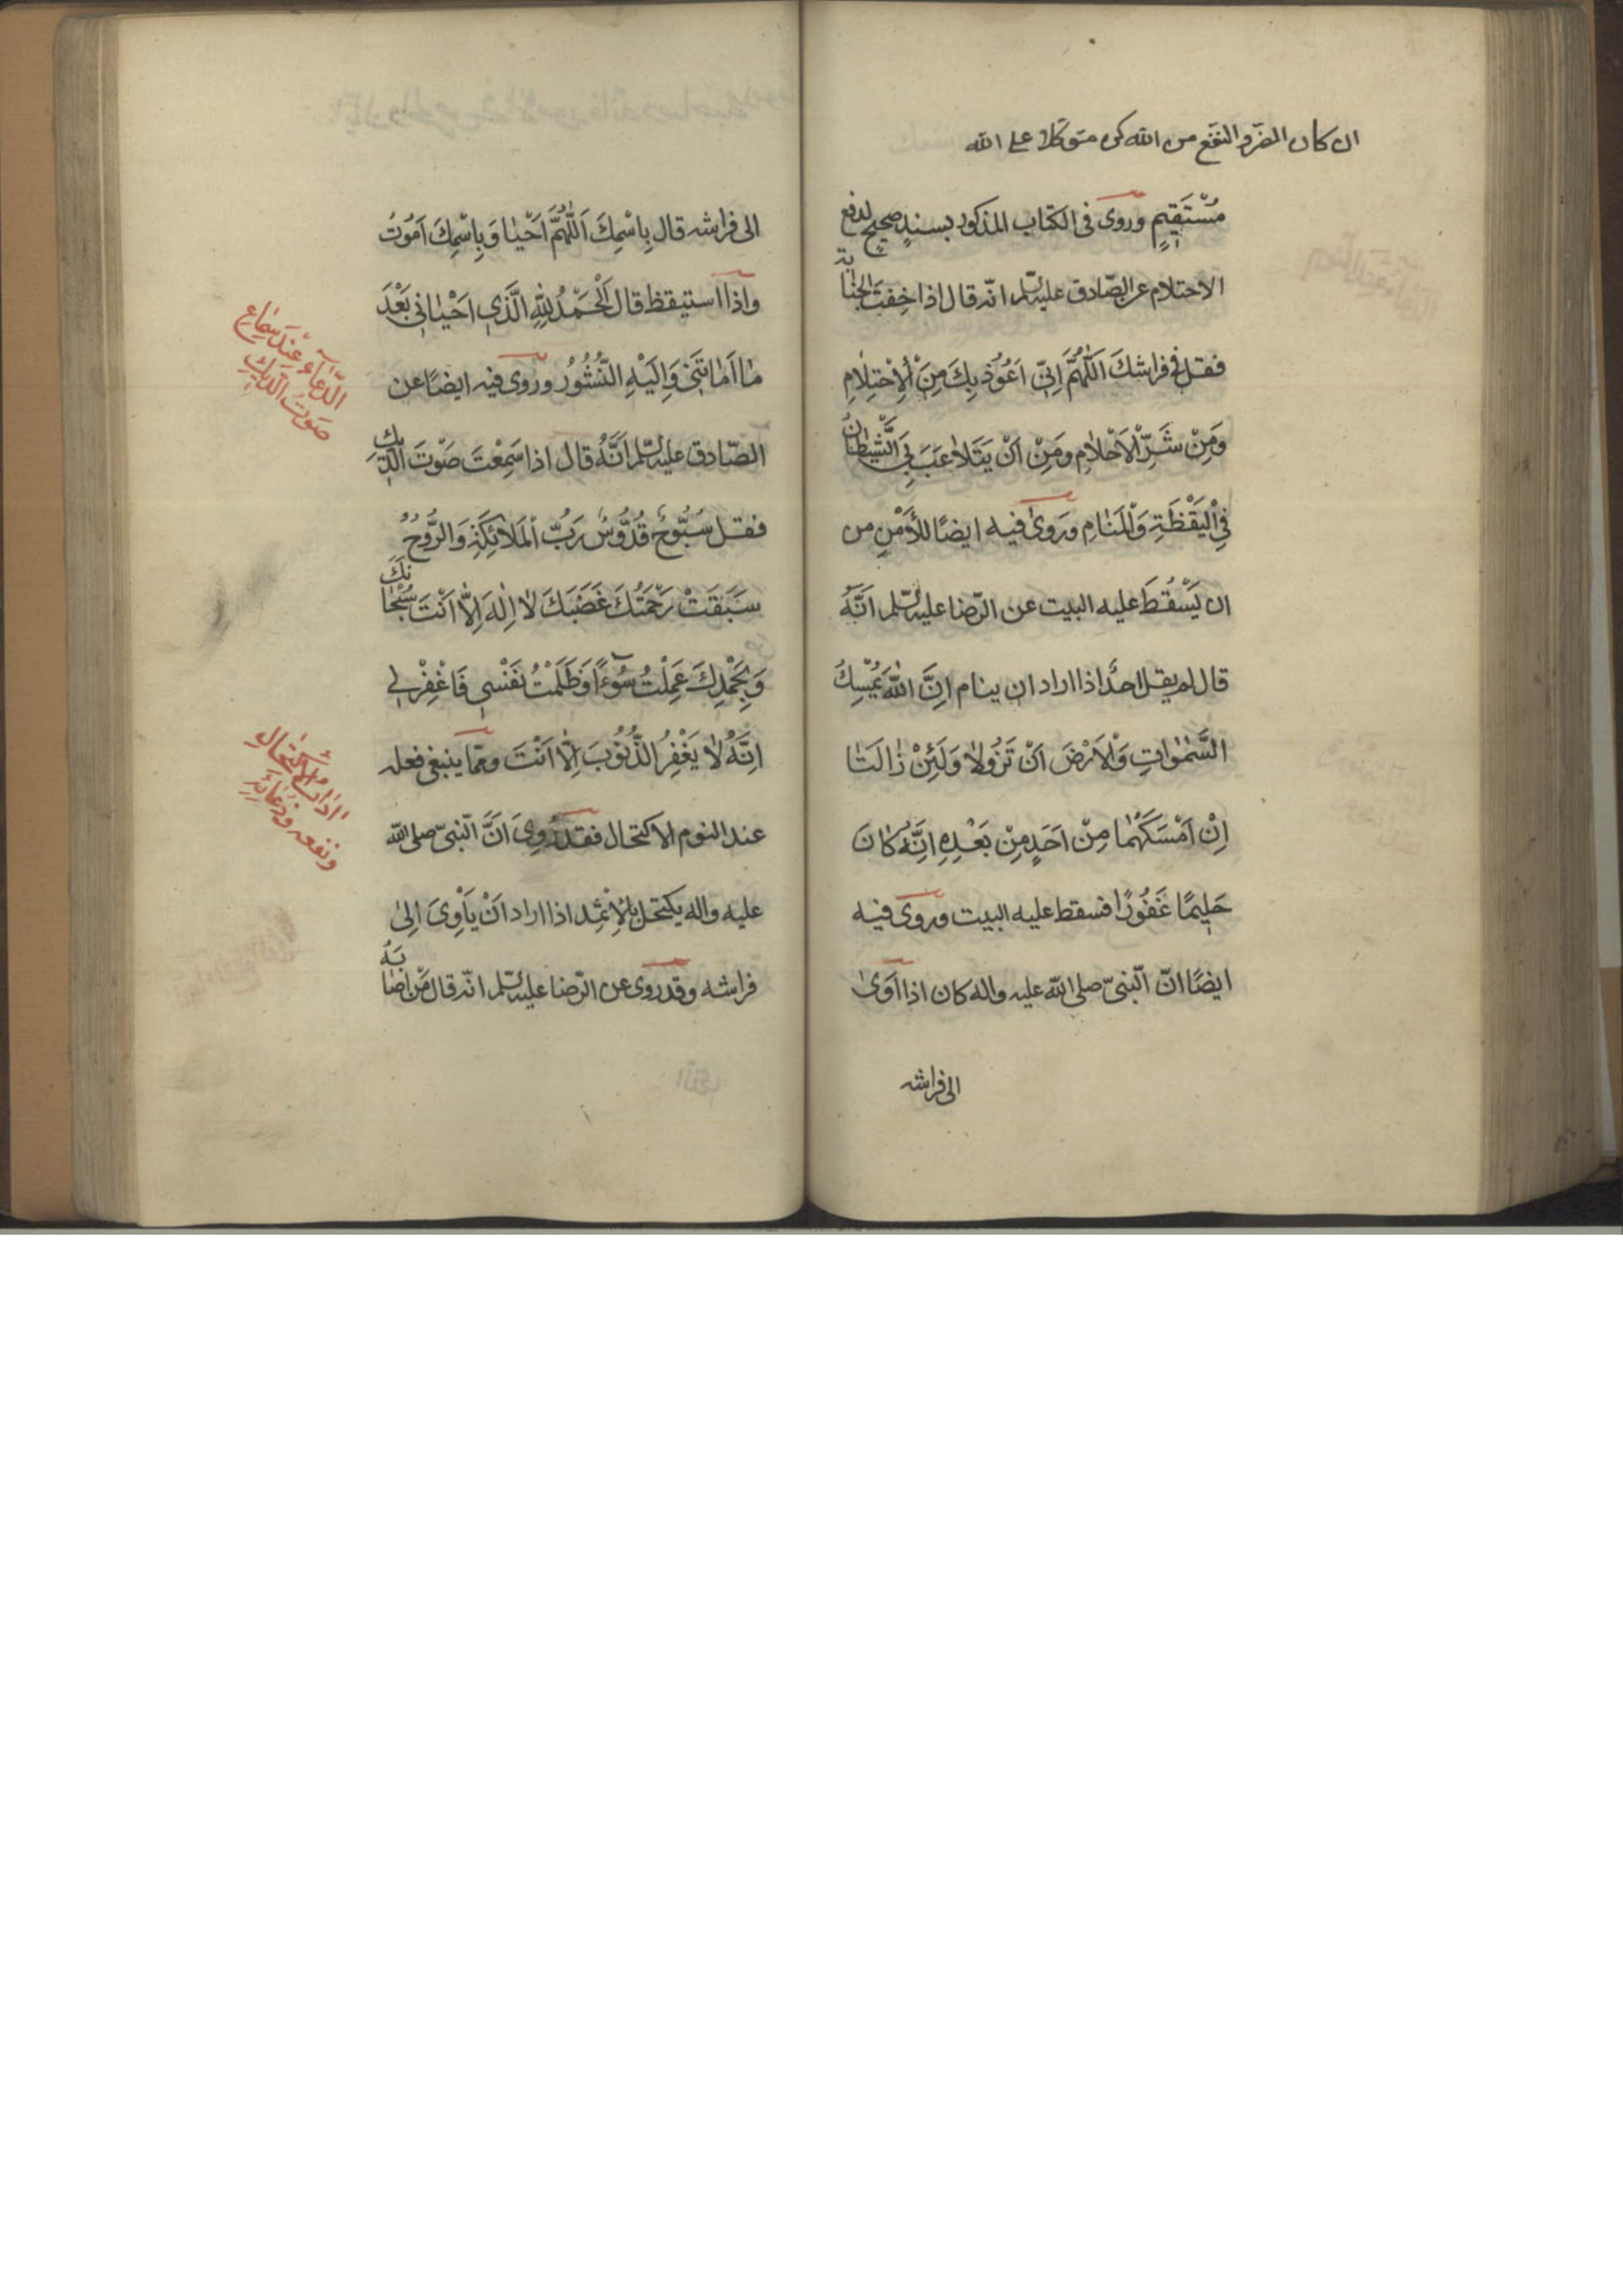 ان كان الضر والنفع من الله كن متوكلا على الله
مُسْتَقِيمٍ وروى فى الكتاب المذكور بسندٍ صحيحٍ لدفع
الاحتلام عن الصّادق عليه السّلم انّه قال اذا خِفتَ الجنابة
فقل فى فراشك اَللّٰهُمَّ اِنّى اَعُوُذ بِكَ مِنَ الْاِحْتِلٰامِ
وَمِنْ شَرِّ الْاَحْلٰامِ وَمِنْ اَنْ يَتَلٰاعَبَ بِىَ الشَّيْطٰانُ
فِى الْيَقْظَةِ وَالْمَنٰامِ وروىٰ فيه ايضًا للأمْنِ من
ان يَسْقُطَ عليه البيت عن الرّضا عليه السّلم اَنَّهُ
قال لم يقل احدٌ اذا اراد ان ينام اِنَّ اللّٰهَ يُمْسِكُ
السَّمٰوٰاتِ وَالْاَرْضَ اَنْ تَزُولٰا وَلَئِنْ زٰالَتٰا
اِنْ اَمْسَكَهُمٰا مِنْ اَحَدٍ مِنْ بَعْدِهِ اِنَّهُ كٰانَ
حَلِيمًا غَفُورًا فسقط عليه البيت وروى فيه
ايضًا انّ النّبىّ صلى اللّه عليه واله كان اذا اَوىٰ
الى فراشه
الى فراشه قال بِاسْمِكَ اَللّٰهُمَّ اَحْيٰا وَبِاسْمِكَ اَمُوتُ
واذا استيقظ قال اَلْحَمْدُ لِلّٰهِ الَّذِى اَحْيٰانِى بَعْدَ
مٰا اَمٰاتَنِى وَاِلَيْهِ النُّشُورُ وروى فيه ايضًا عن
الصّادق عليه السّلم اَنَّهُ قال اذا سَمِعْتَ صَوْتَ الدّيكِ
فقل سُبُّوحٌ قُدُّوسٌ رَبُّ الْمَلٰائِكَةِ وَالرُّوُحِ
سَبَقَتْ رَحْمَتُكَ غَضَبَكَ لٰا اِلٰهَ اِلّٰا اَنْتَ سُبْحٰانَكَ
وَبِحَمْدِكَ عَمِلْتُ سُوءًا وَظَلَمْتُ نَفْسِى فَاغْفِرْ لِى
اِنَّهُ لٰا يَغْفِرُ الذُّنُوُبَ اِلّٰا اَنْتَ وممّا ينبغى فعله
عند النوم الاكتحال فقد رُوِىَ اَنَّ النّبىّ صلى اللّه
عليه واله يكتحل بالْاِثْمِد اذا اراد اَنْ يَأْوِىَ اِلىٰ
فراشه وقد روى عن الرّضا عليه السّلم انّه قال مَنْ اَصٰابَهُ
الدُّعآءُ عِنْدَ سِمٰاعِ
صَوْتِ الدّيكِ
ادٰابُ الْاِكْتِحٰالِ
ونفعه ودعائِهِ